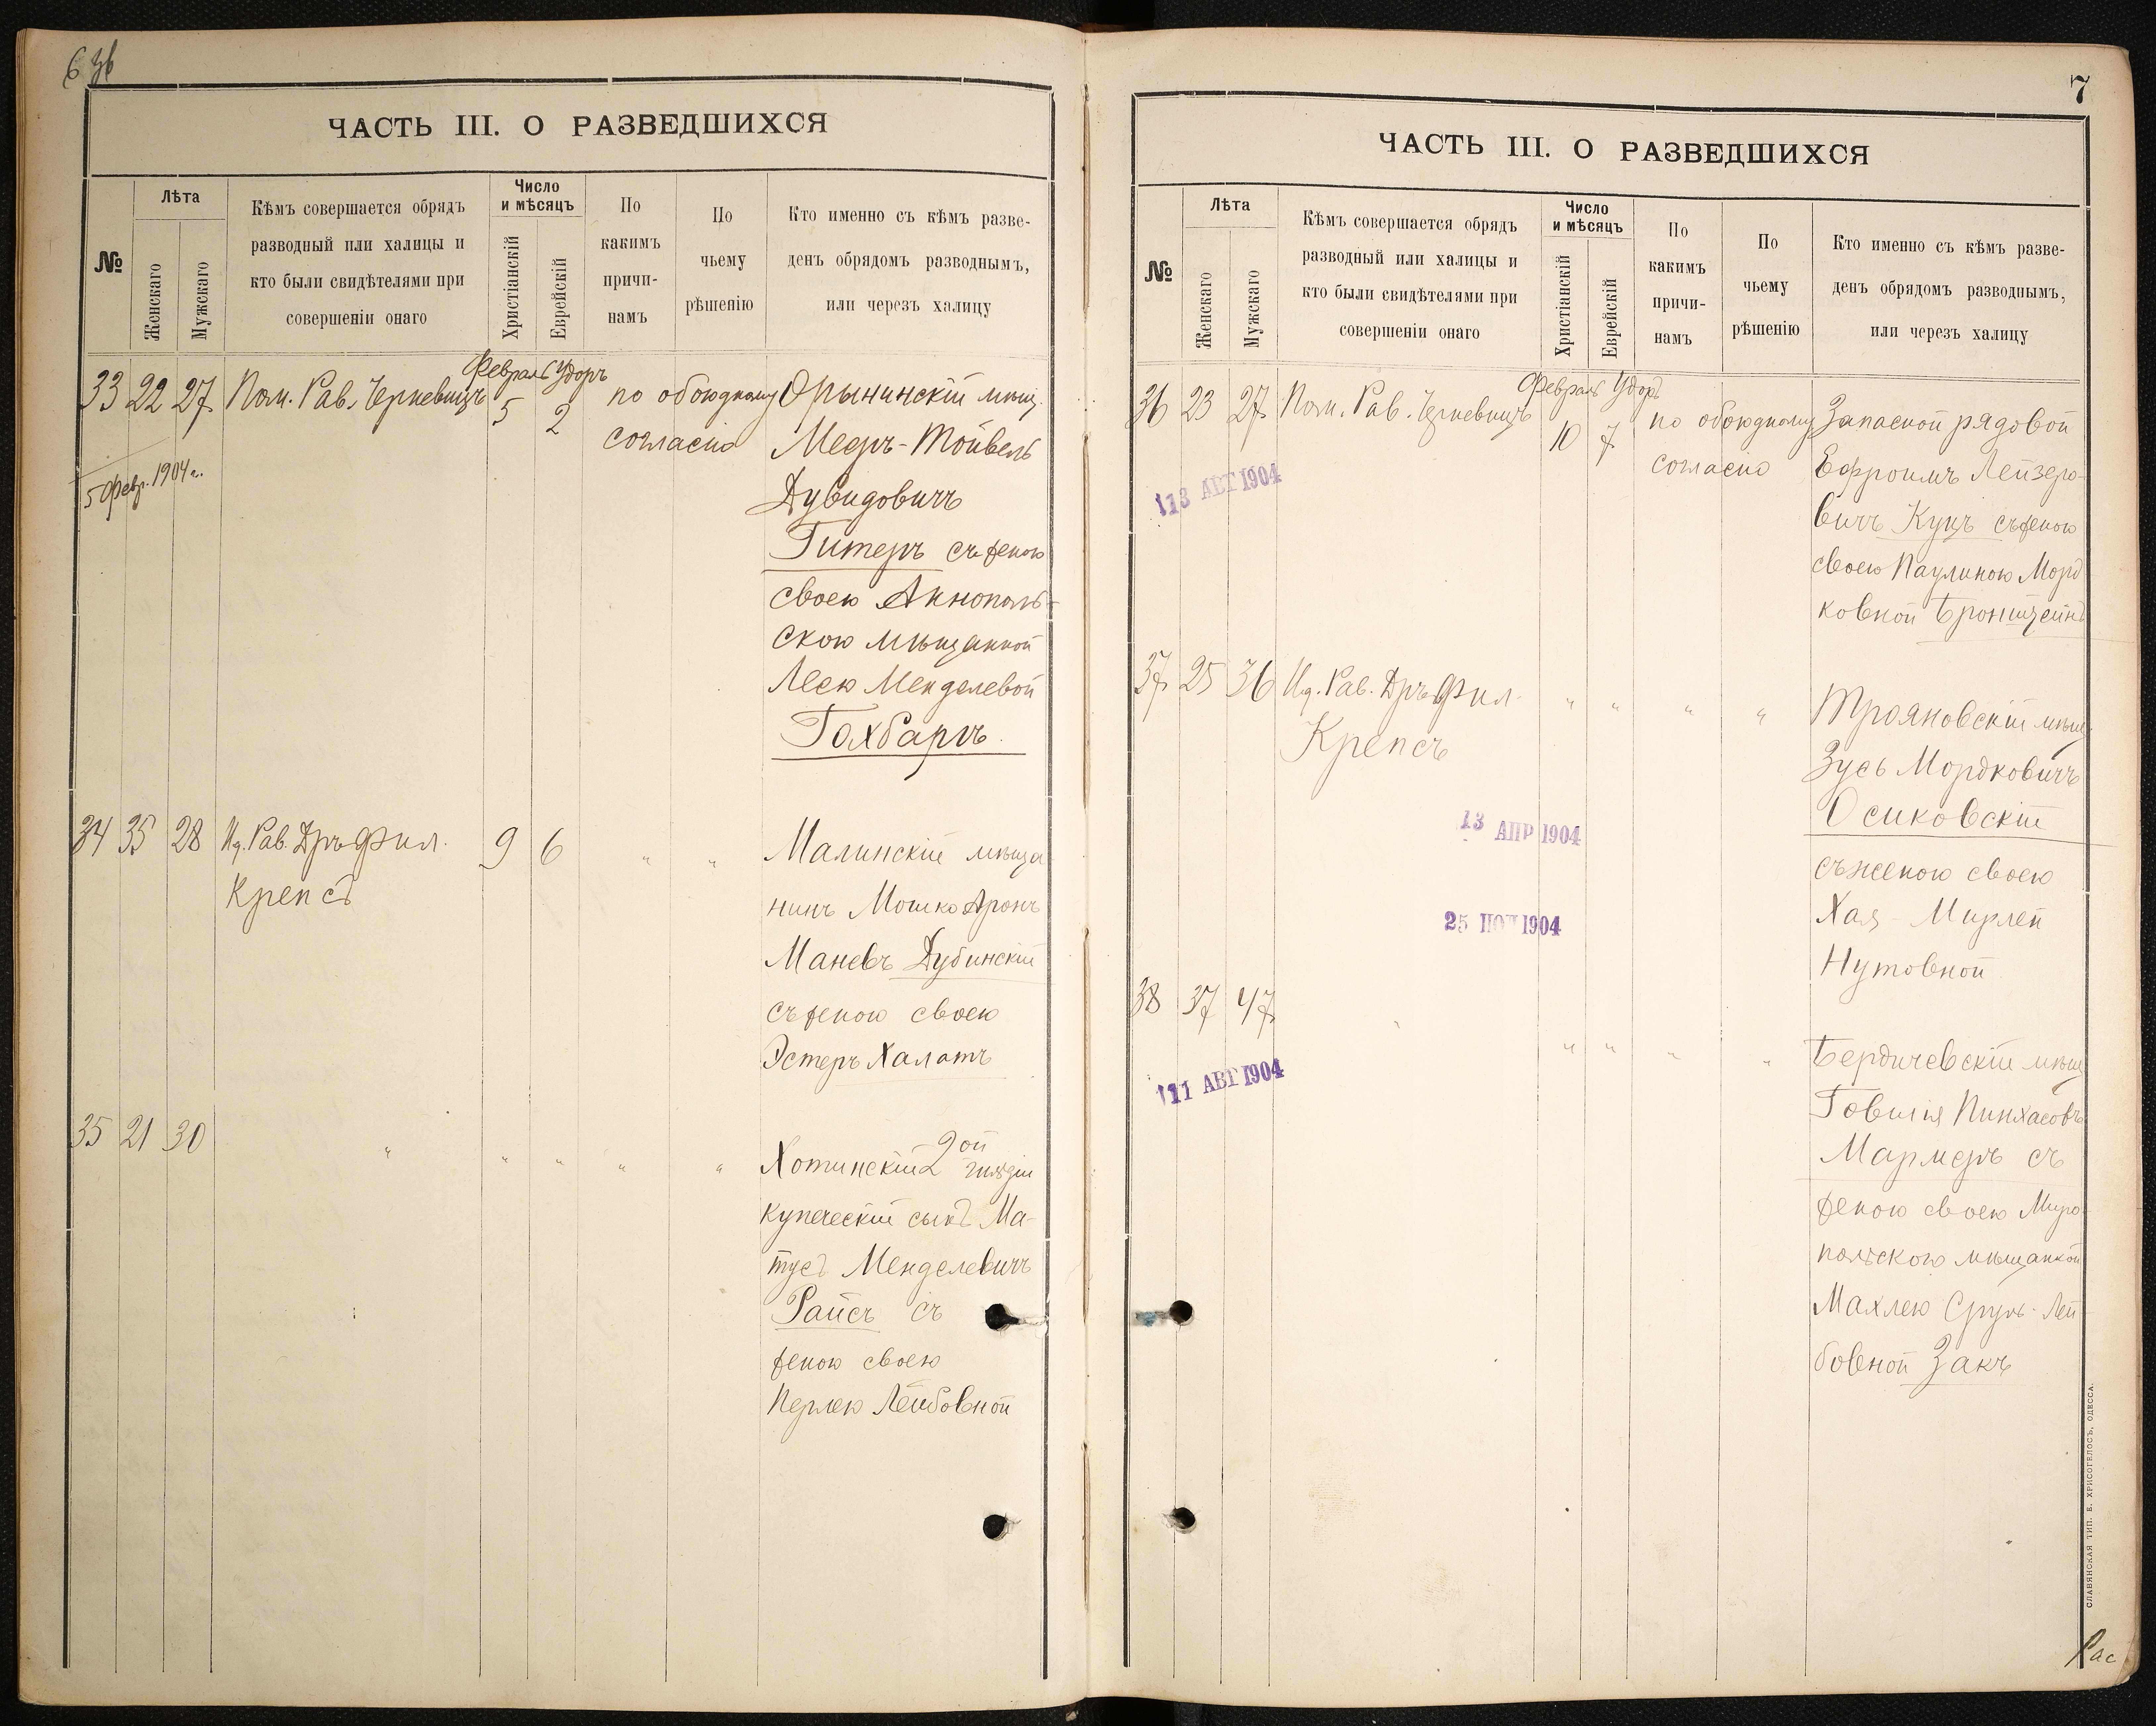 6 зб
ЧАСТЬ III. О РАЗВЕДШИХСЯ
№
Лѣта
Женскаго
Мужскаго
Кѣмъ совершается обрядъ
разводный или халицы и
кто были свидѣтелями при
совершеніи онаго
Число
и мѣсяцъ
Христіанскій
Еврейскій
По
какимъ
причи-
намъ
По
чьему
рѣшенію
Кто именно съ кѣмъ разве-
денъ обрядомъ разводнымъ,
или черезъ халицу
Февраль Удоръ
33 22 27 Пом. Рав. Черневицъ 5 2 по обоюдному Орынинскій мѣщ.
согласію Мееръ-Тойвель
5 Февр. 1904 г.
Дувидовичъ
Гитеръ съ женою
своею Аннополь-
скою мѣщанкой
Леею Менделевой
Гохбаръ.
34 35 28 И. д. Рав. Дръ Фил. 9 6 " " Малинскій мѣща
Крепсъ
нинъ Мошко Аронъ
Маневъ Дубинскій
съ женою своею
Эстеръ Халатъ
35 21 30 " " " " " Хотинскій 2ой гильдіи
купеческій сынъ Ма-
тусъ Менделевичъ
Райсъ съ
женою своею
Перлею Лейбовной
7
ЧАСТЬ III. О РАЗВЕДШИХСЯ
№
Лѣта
Женскаго
Мужскаго
Кѣмъ совершается обрядъ
разводный или халицы и
кто были свидѣтелями при
совершеніи онаго
Число
и мѣсяцъ
Христіанскій
Еврейскій
По
какимъ
причи-
намъ
По
чьему
рѣшенію
Кто именно съ кѣмъ разве-
денъ обрядомъ разводнымъ,
или черезъ халицу
Февраль Удоръ
36 23 27 Пом. Рав. Черневицъ 10 7 по обоюдному Запасной рядовой
согласію Ефроимъ Лейзеро-
13 АВГ 1904
вичъ Куцъ съ женою
своею Паулиною Морд
ковной Бронштейнъ
37 25 36 И. д. Рав. Дръ Фил. " " " " Трояновскій мѣщ.
Крепсъ
Зусь Мордковичъ
Осиковскій
13 АПР 1904
съ женою своею
25 1904
Хая-Мирлей
Нутовной
38 37 47 " " " " Бердичевскій мѣщ
11 АВГ 1904
Говшія Пинхасовъ
Мармеръ съ
женою своею Миро-
польскою мѣщанкой
Махлею Сруль-Лей
бовной Закъ
СЛАВЯНСКАЯ ТИП. Е. ХРИСОГЕЛОСЪ, ОДЕССА.
Рас